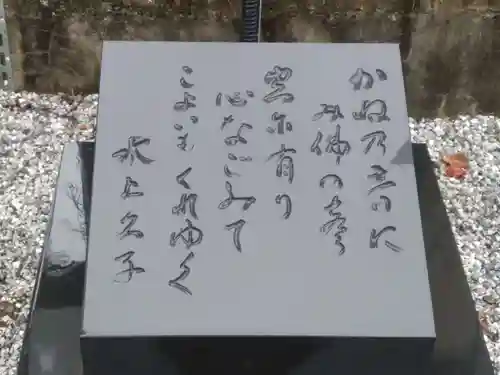 かね乃音に
み佛の聲
だ尓有り
心なごみて
こよいもくれゆく
水上久子